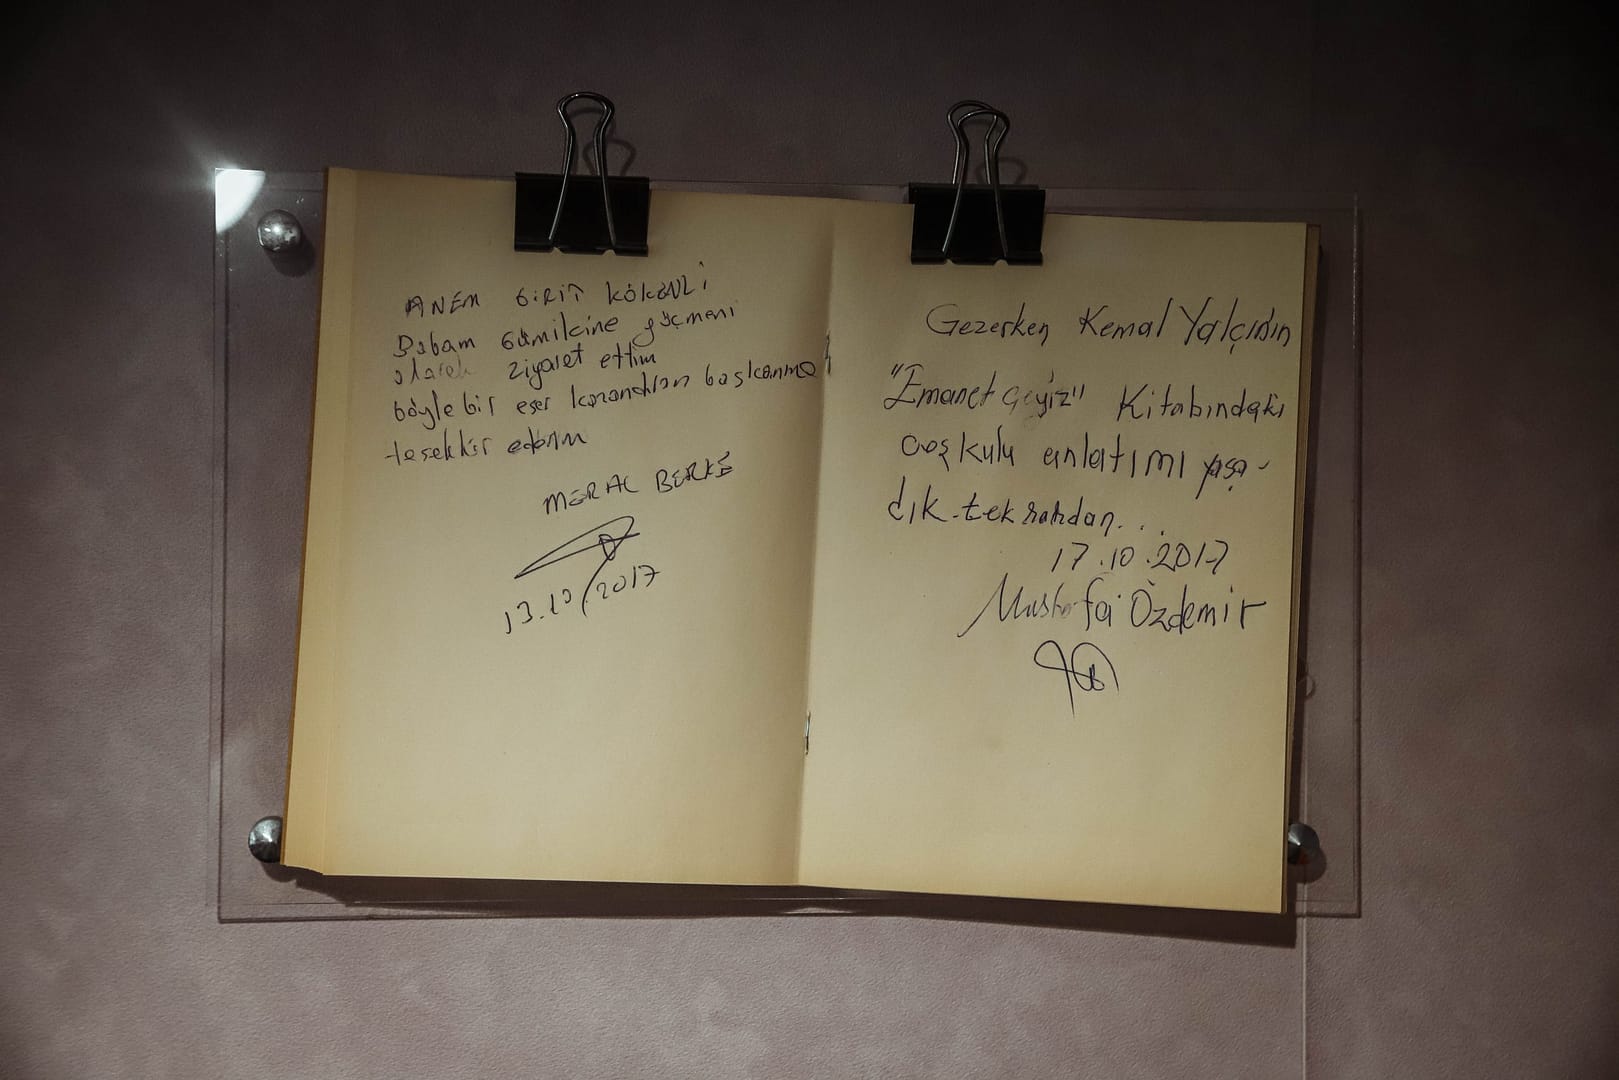 ANEM GİRİT KÖKENLİ
Babam Gümilcine göçmeni
olarak ziyaret ettim
böyle bir eser kazandıran başkanıma
teşekkür ederim
MERAL BERKE
13.10/2017
Gezerken Kemal Yalçının
"Emanet Çeyiz" Kitabındaki
coşkulu anlatımı yaşa-
dık tekrardan...
17.10.2017
Mustafa Özdemir